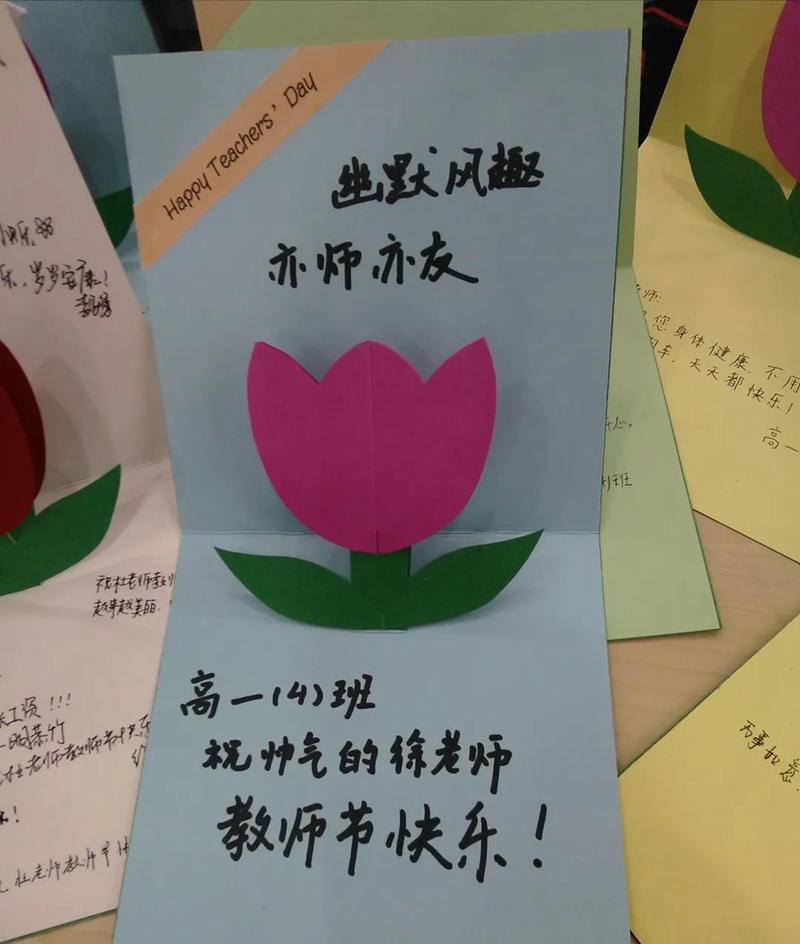 Happy Teachers' Day
幽默风趣
亦师亦友
高一(4)班
祝帅气的徐老师
教师节快乐!
乐,岁岁安康!
祝杜老师教
越来越美丽
工资!!!
杜老师教师节快乐
杜老师教师节快
师:
您身体健康,不用
车,天天都快乐!
高一
班
万事如意